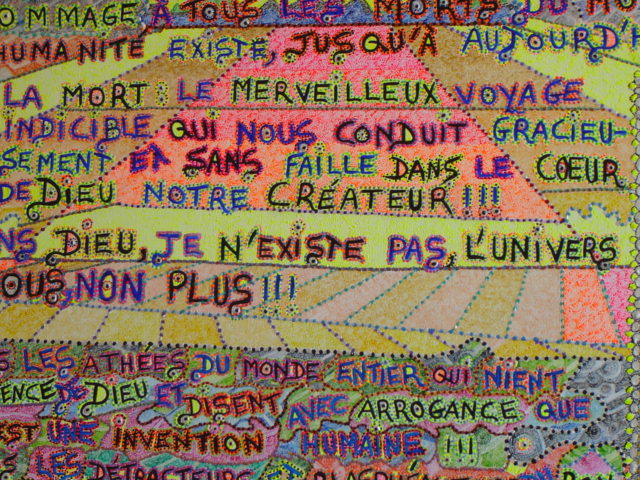 OMMAGE À TOUS LES MORTS DU
HUMANITÉ EXISTE, JUSQU'À AUJOURD'H
LA MORT : LE MERVEILLEUX VOYAGE
INDICIBLE QUI NOUS CONDUIT GRACIEU-
SEMENT ET SANS FAILLE DANS LE CŒUR
DE DIEU NOTRE CRÉATEUR !!!
NS DIEU, JE N'EXISTE PAS, L'UNIVERS
OUS, NON PLUS !!!
S LES ATHÉES DU MONDE ENTIER QUI NIENT
ENCE DE DIEU ET DISENT AVEC ARROGANCE QUE
EST UNE INVENTION HUMAINE !!!
S LES DÉTRACTEURS ET